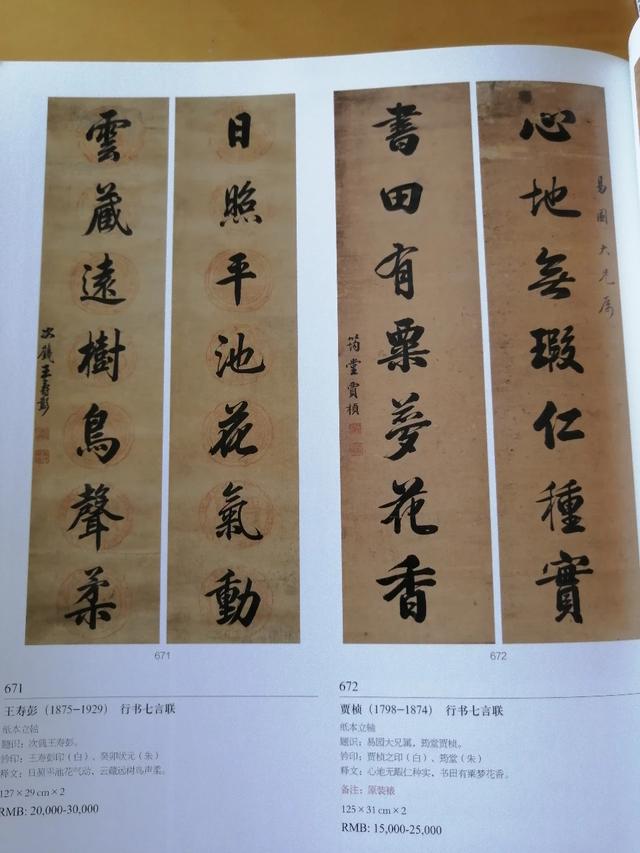 日照平池花氣動
雲藏遠樹鳥聲柔
次篯王壽彭
671
易園大兄屬
心地無瑕仁種實
書田有粟夢花香
筠堂賈楨
672
671
王寿彭（1875-1929） 行书七言联
纸本立轴
题识：次篯王寿彭。
钤印：王寿彭印（白）、癸卯状元（朱）
释文：日照平池花气动，云藏远树鸟声柔。
127×29 cm×2
RMB: 20,000-30,000
672
贾桢（1798-1874） 行书七言联
纸本立轴
题识：易园大兄属，筠堂贾桢。
钤印：贾桢之印（白）、筠堂（朱）
释文：心地无瑕仁种实，书田有粟梦花香。
备注：原装裱
125×31 cm×2
RMB: 15,000-25,000